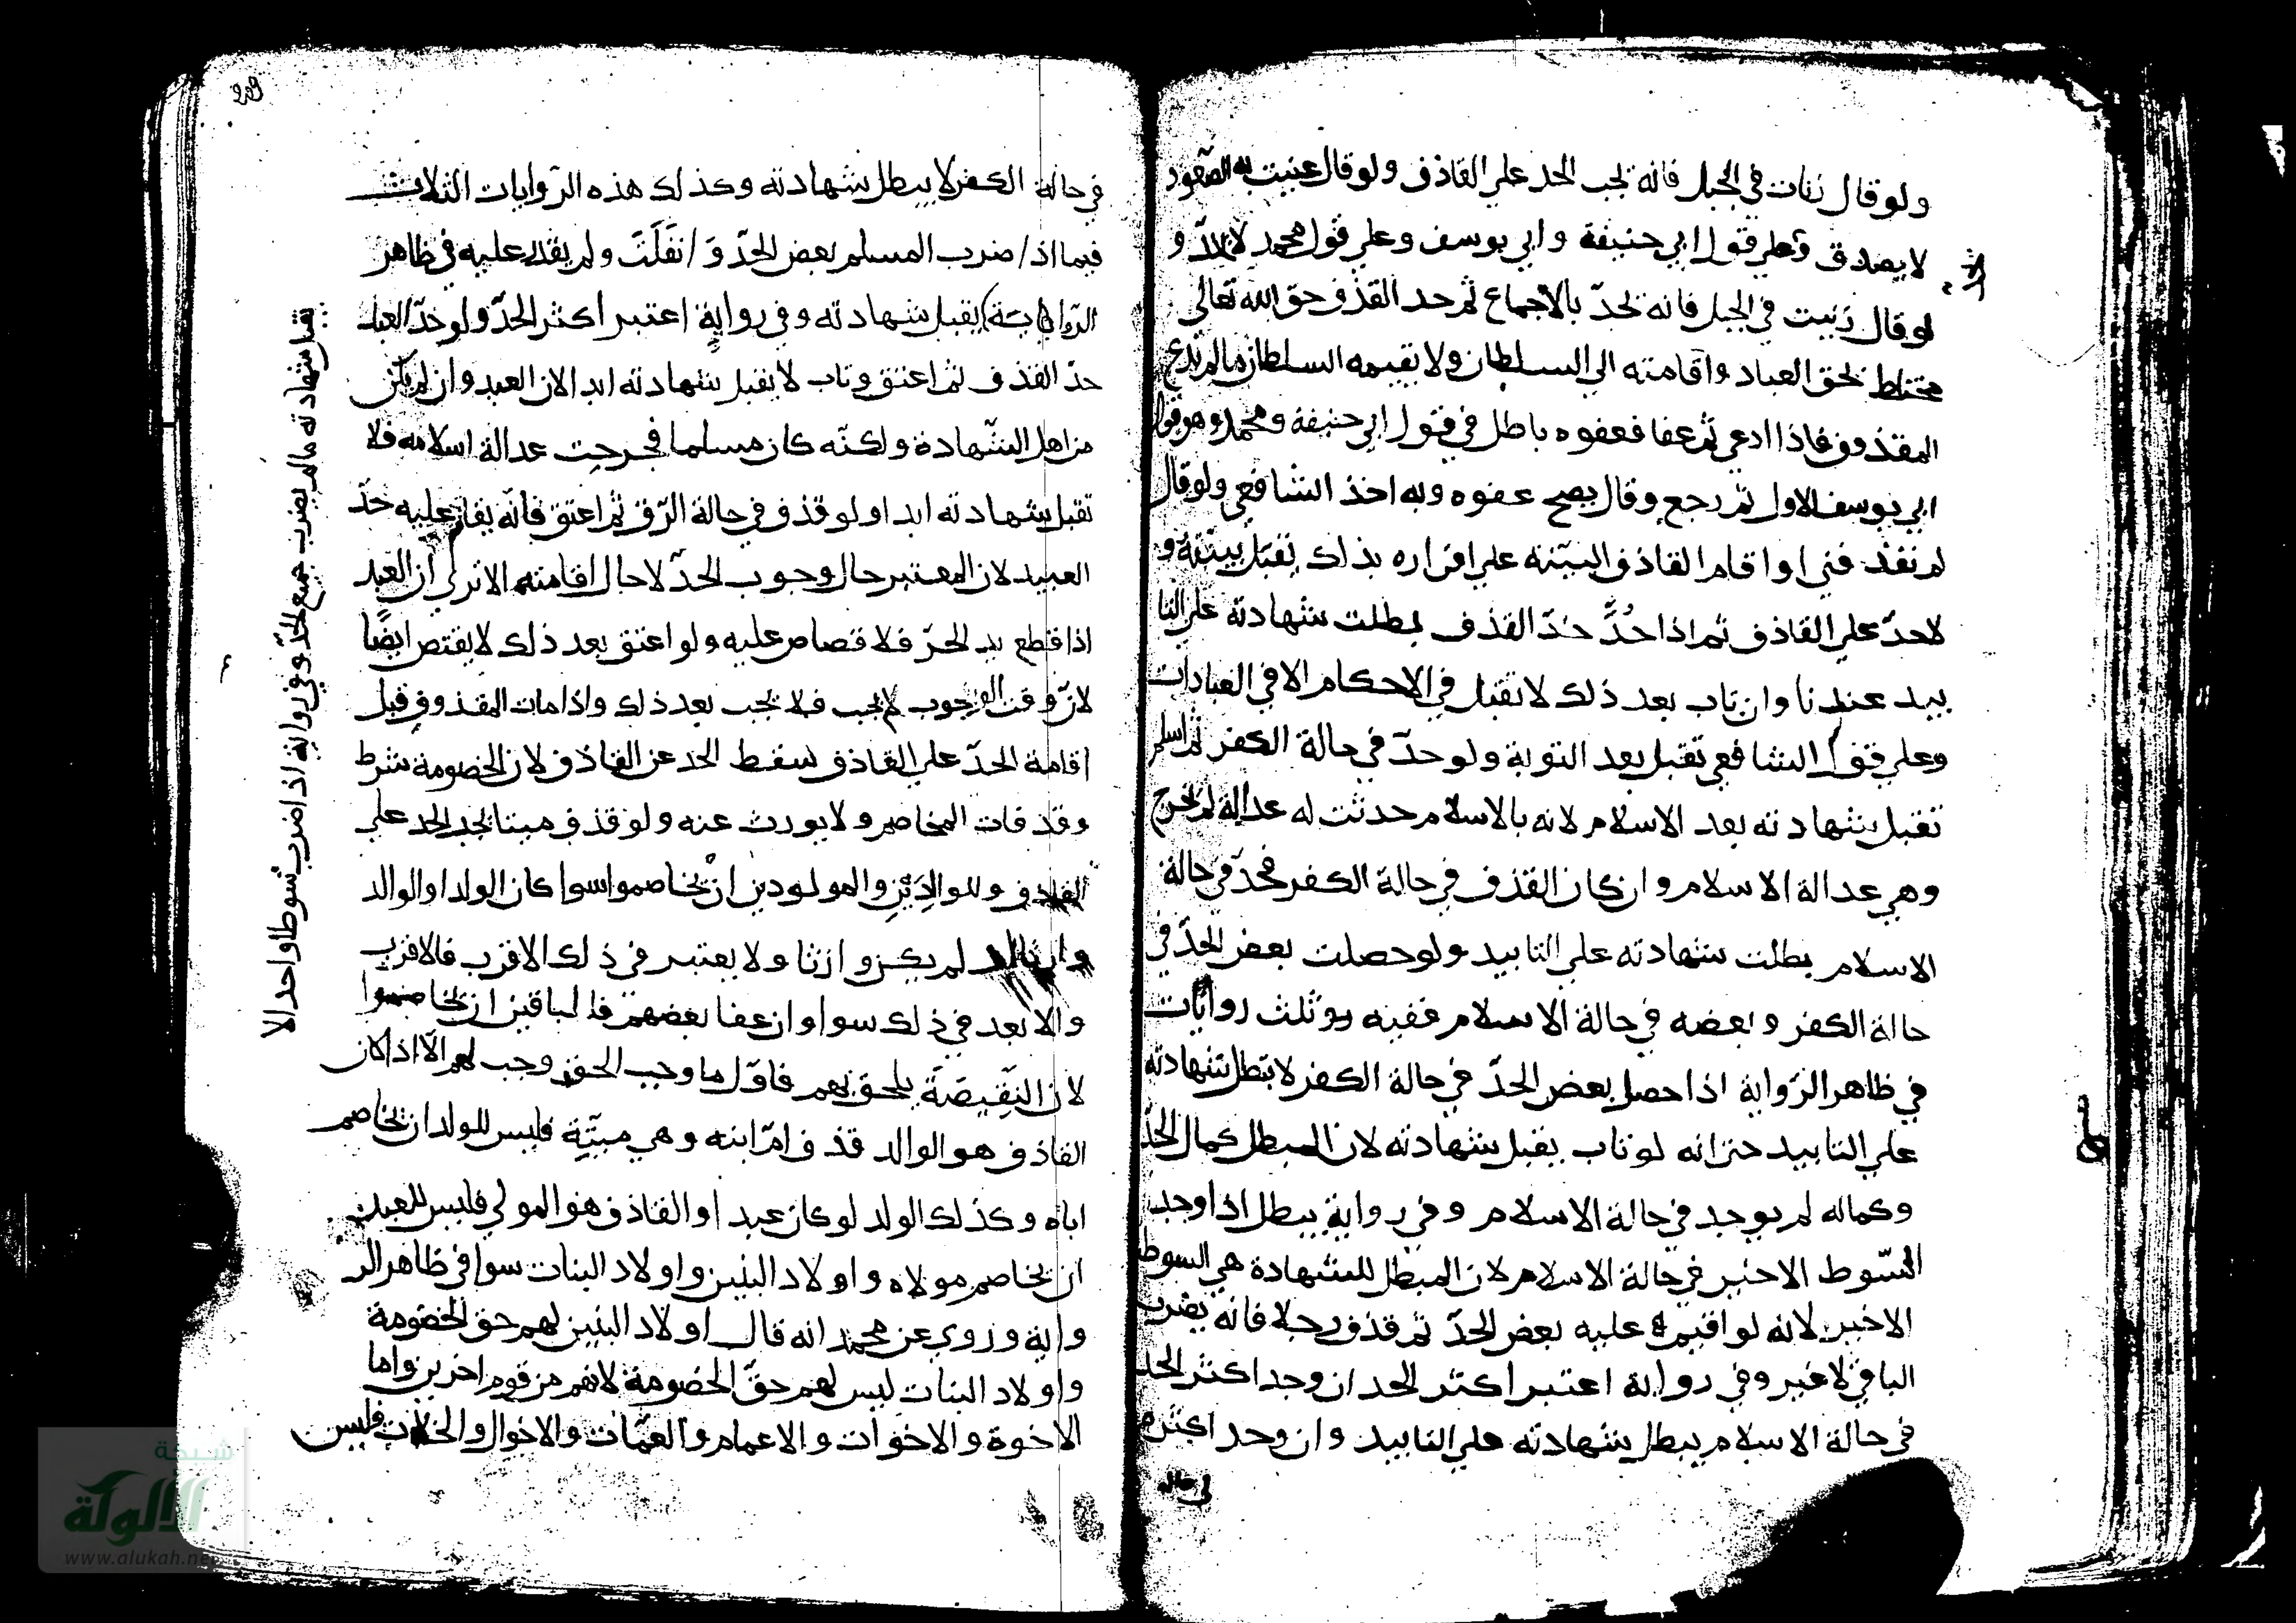 ولو قال زنات في الجبل فانه يجب الحد علي القاذف ولو قال عنيت به الصعود
لا يصدق وعلي قول ابي حنيفة وابي يوسف وعلي قول محمد لا يحدّ و
لو قال زنيت في الجبل فانه يحدّ بالاجماع ثم حد القذف حق الله تعالى
مختلط بحق العباد واقامته الي السلطان ولا يقيمه السلطان مالم يدع
المقذوف فاذا ادعي ثم عفا فعفوه باطل في قول ابي حنيفة ومحمد وهو قول
ابي يوسف الاول ثم رجع وقال يصح عفوه وبه اخذ الشافعي ولو قال
لم اقذفني او اقام القاذف البيّنة علي اقراره بذلك تقبل بينته و
لا حدّ علي القاذف ثم اذا حُدَّ حدّ القذف بطلت شهادته علي التا
بيد عندنا وان تاب بعد ذلك لا تقبل في الاحكام الا في العبادات
وعلي قول الشافعي تقبل بعد التوبة ولو حدّ في حالة الكفر ثم اسلم
تقبل شهادته بعد الاسلام لانه بالاسلام حدثت له عدالة لم تخرج
وهي عدالة الاسلام وان كان القذف في حالة الكفر فحدّ في حالة
الاسلام بطلت شهادته علي التابيد ولو حصلت بعض الحدّ في
حالة الكفر وبعضه في حالة الاسلام ففيه ثلث روايات
في ظاهر الرّواية اذا حصل بعض الحدّ في حالة الكفر لا تبطل شهادته
علي التابيد حتي انه لو تاب يقبل شهادته لان المبطل كمال الحدّ
وكماله لم يوجد في حالة الاسلام وفي رواية يبطل اذا وجد
السّوط الاخير في حالة الاسلام لان المبطل للشهادة هي السوط
الاخير لانه لو اقيم عليه بعض الحدّ ثم قذف رجلا فانه يضرب
الباقي لا غير وفي رواية اعتبر اكثر الحد ان وجد اكثر الحد
في حالة الاسلام يبطل شهادته علي التابيد وان وجد اكثره
في حالة
في حالة الكفر لا يبطل شهادته وكذلك هذه الرّوايات الثلاث
فيما اذا ضرب المسلم بعض الحدّ وَانفَلَتَ ولم يقدر عليه في ظاهر
الرّواية يقبل شهادته وفي روايةٍ اعتبر اكثر الحدّ ولو حدّ العبد
حدّ القذف ثم اعتق وتاب لا يقبل شهادته ابدا لان العبد وان لم يكن
من اهل الشّهادة ولكنّه كان مسلما فجرحت عدالة اسلامه فلا
تقبل شهادته ابدا ولو قذف في حالة الرّق ثم اعتق فانّه يقام عليه حدّ
العبيد لان المعتبر حال وجوب الحدّ لا حال اقامته الا تري ان العبد
اذا قطع يد الحرّ فلا قصاص عليه ولو اعتق بعد ذلك لا يقتص ايضًا
لانّ وقت الوجوب لم يجب فلا يجب بعد ذلك واذا مات المقذوف قبل
اقامة الحدّ علي القاذف سقط الحد عن القاذف لان الخصومة شرط
وقد فات المخاصم ولا يورث عنه ولو قذف ميتا يجب الحد علي
القاذف وللوالِدَيْنِ والمولودين ان يخاصموا سوا كان الولد او الوالد
وارثا او لم يكن وارثا ولا يعتبر في ذلك الاقرب فالاقرب
والابعد في ذلك سوا وان عفا بعضهم فللباقين ان يخاصموا
لان النَقِيصَةَ يلحق بهم فاوّل ما وجب الحق وجب لهم الّا اذا كان
القاذف هو الوالد قذف امّ ابنه وهي ميّتة فليس للولد ان يخاصم
اباه وكذلك الولد لو كان عبدا والقاذف هو المولي فليس للعبد
ان يخاصم مولاه واولاد البنين واولاد البنات سوا في ظاهر الر
واية وروي عن محمد انه قال اولاد البنين لهم حق الخصومة
واولاد البنات ليس لهم حقّ الخصومة لانهم من قوم اخرين واما
الاخوة والاخوات والاعمام والعمّات والاخوال والخالات فليس
تقبل شهادته مالم يضرب جميع الحدّ وفي رواية اذا ضرب سوطا واحدا لا
شبكة
الألوكة
www.alukah.net